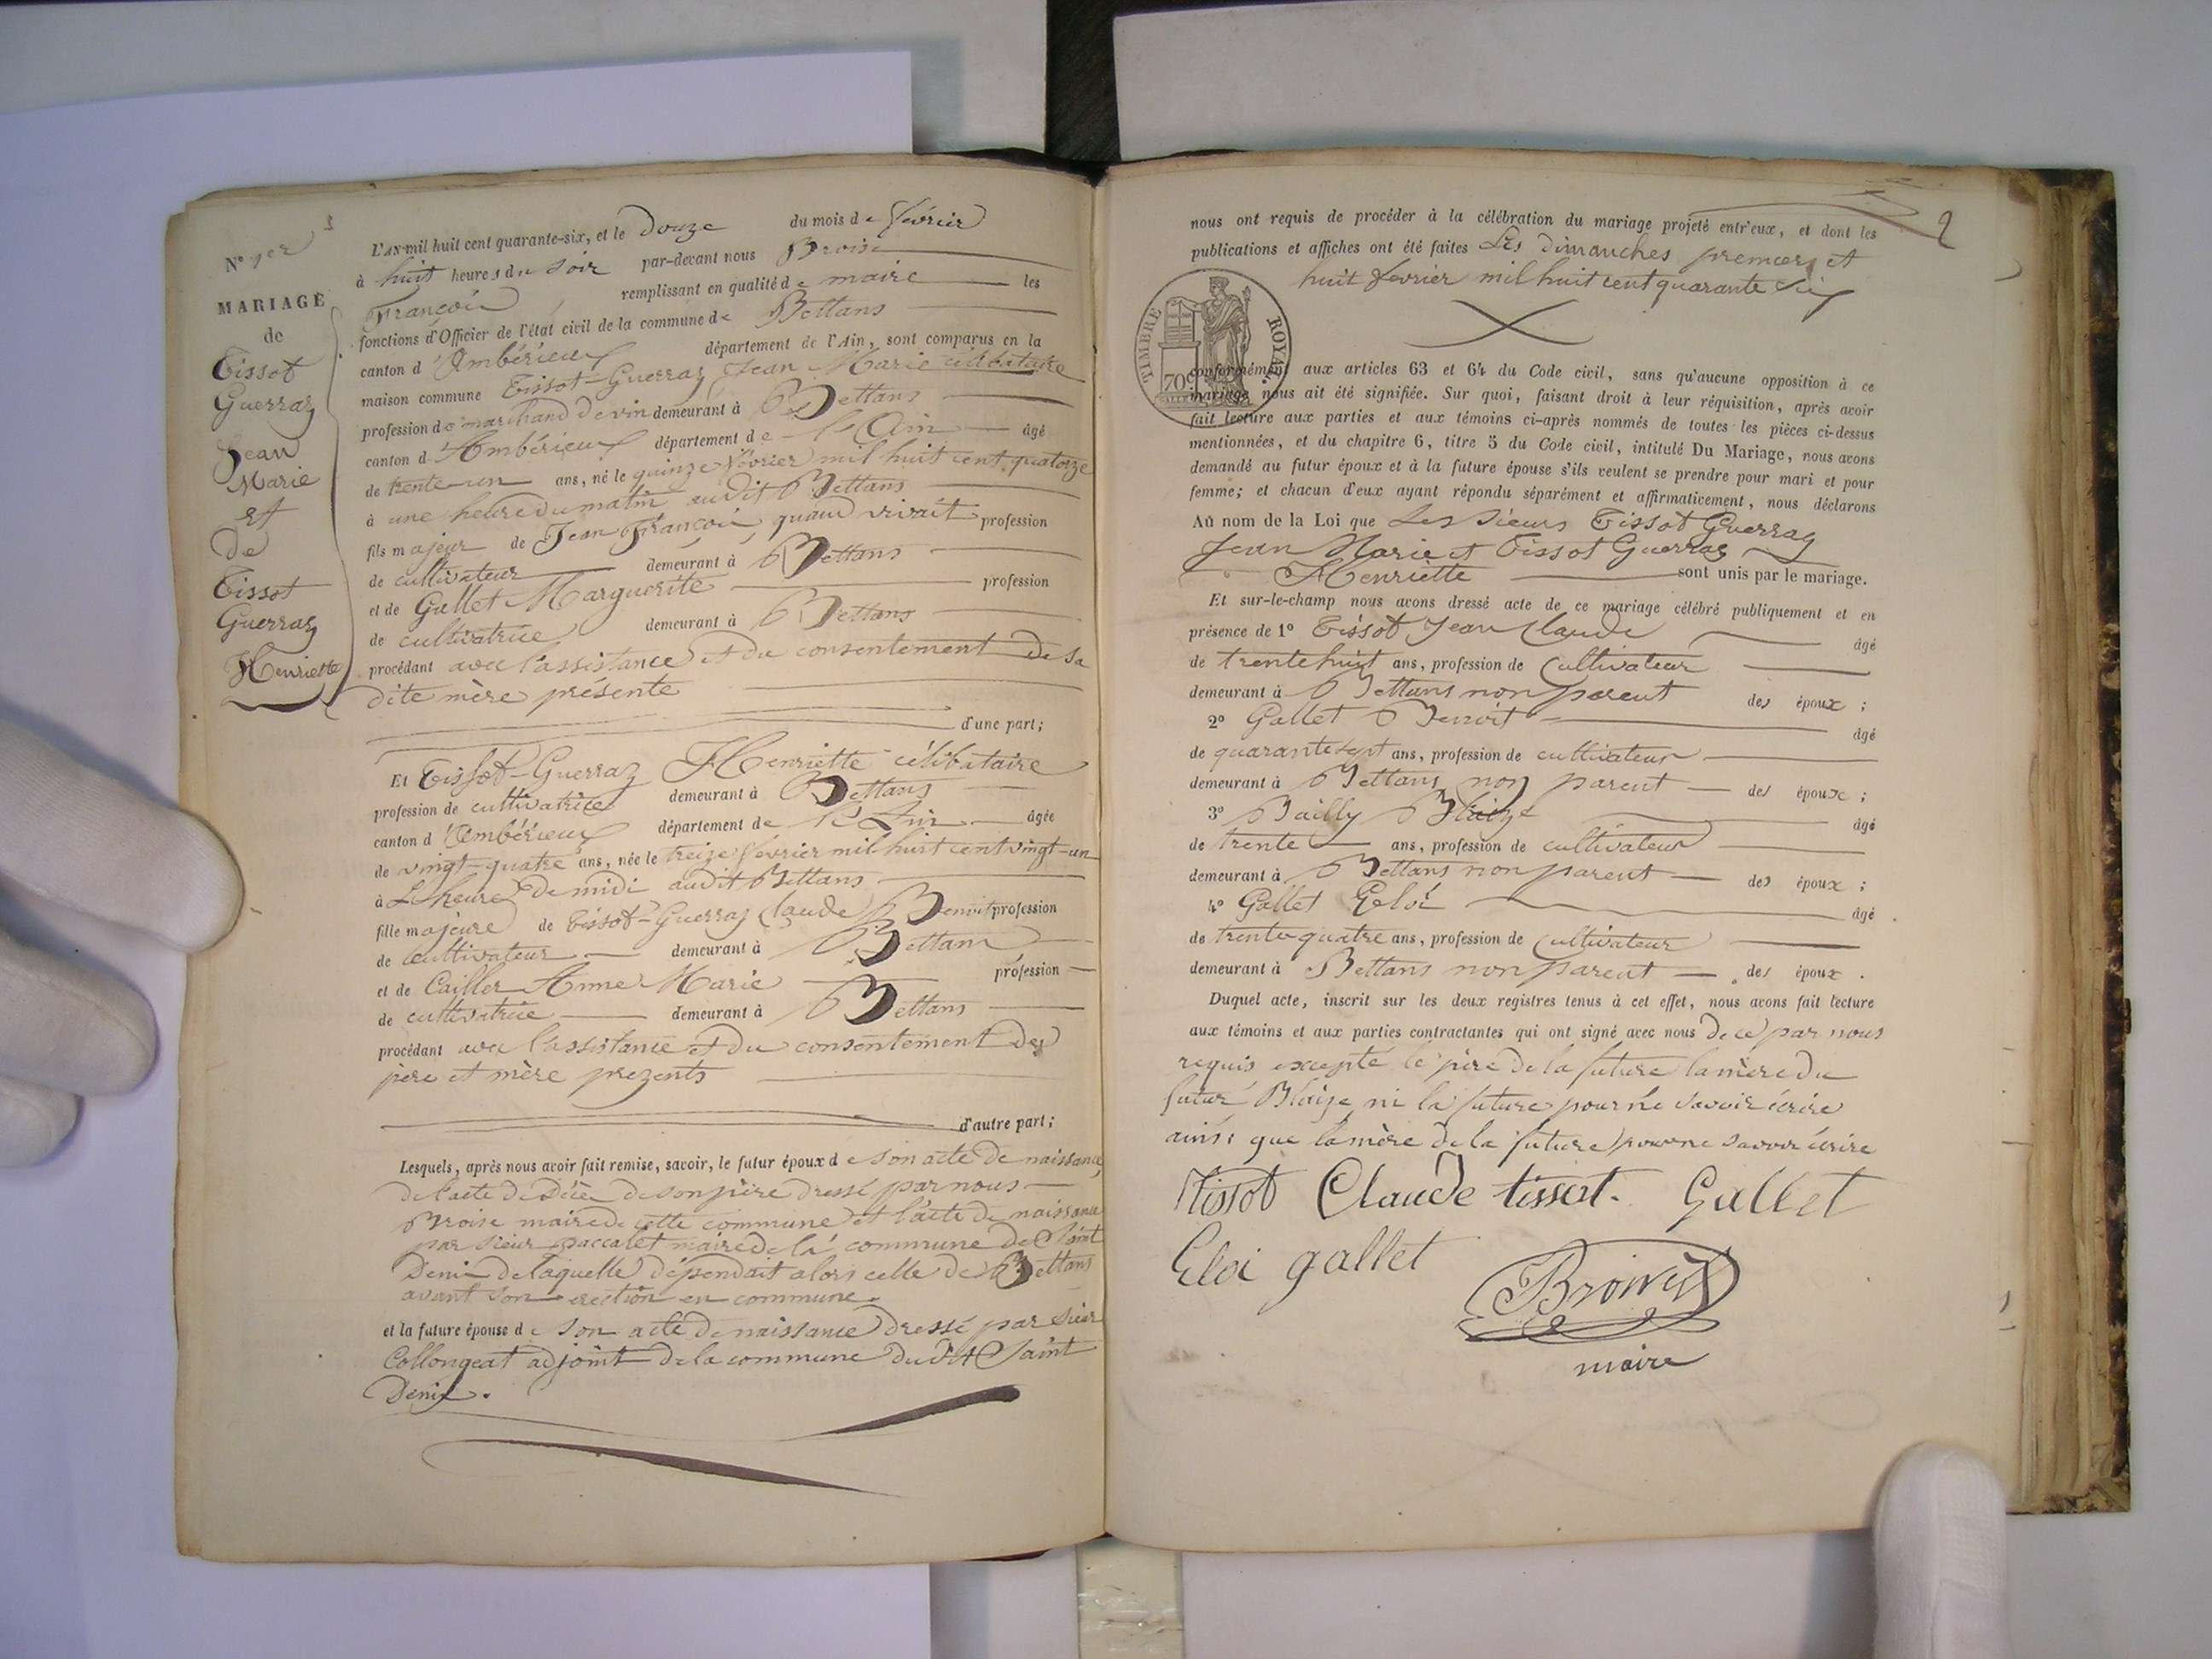 N° 1er
MARIAGE
de
Tissot
Guerraz
Jean
Marie
et
de
Tissot
Guerraz
Henriette
L'AN mil huit cent quarante-six, et le douze du mois de février
à huit heures du soir par-devant nous Broise
François remplissant en qualité de maire les
fonctions d'Officier de l'état civil de la commune de Bettans
canton d'Ambérieux département de l'Ain, sont comparus en la
maison commune Tissot-Guerraz Jean Marie célibataire
profession de marchand de vin demeurant à Bettans
canton d'Ambérieux département de l'Ain âgé
de trente-un ans, né le quinze février mil huit cent quatorze
à une heure du matin audit Bettans
fils majeur de Jean François, quand vivait profession
de cultivateur demeurant à Bettans
et de Gallet Marguerite profession
de cultivatrice demeurant à Bettans
procédant avec l'assistance et du consentement de sa
dite mère présente
d'une part;
Et Tissot-Guerraz Henriette célibataire
profession de cultivatrice demeurant à Bettans
canton d'Ambérieux département de l'Ain âgée
de vingt-quatre ans, née le treize février mil huit cent vingt-un
à L'heure de midi audit Bettans
fille majeure de Tissot-Guerraz Claude Benoit profession
de cultivateur demeurant à Bettans
et de Cailler Anne Marie profession
de cultivatrice demeurant à Bettans
procédant avec l'assistance et du consentement des
père et mère prezents
d'autre part;
Lesquels, après nous avoir fait remise, savoir, le futur époux de son acte de naissance,
de l'acte de décès de son père dressé par nous
Broise maire de cette commune et l'acte de naissance
par sieur paccalet maire de la commune de Saint
Denis de laquelle dépendait alors celle de Bettans
avant son erection en commune.
et la future épouse de son acte de naissance dressé par sieur
Collongeat adjoint de la commune dudit Saint
Denis.
2
nous ont requis de procéder à la célébration du mariage projeté entr'eux, et dont les
publications et affiches ont été faites Les dimanches premiers et
huit février mil huit cent quarante six
TIMBRE ROYAL
70c
conformément aux articles 63 et 64 du Code civil, sans qu'aucune opposition à ce
mariage nous ait été signifiée. Sur quoi, faisant droit à leur réquisition, après avoir
fait lecture aux parties et aux témoins ci-après nommés de toutes les pièces ci-dessus
mentionnées, et du chapitre 6, titre 5 du Code civil, intitulé Du Mariage, nous avons
demandé au futur époux et à la future épouse s'ils veulent se prendre pour mari et pour
femme; et chacun d'eux ayant répondu séparément et affirmativement, nous déclarons
Au nom de la Loi que Les sieurs Tissot Guerraz
Jean Marie et Tissot Guerraz
Henriette sont unis par le mariage.
Et sur-le-champ nous avons dressé acte de ce mariage célébré publiquement et en
présence de 1° Tissot Jean Claude âgé
de trente huit ans, profession de cultivateur
demeurant à Bettans non parent des époux ;
2° Gallet Benoit âgé
de quarante sept ans, profession de cultivateur
demeurant à Bettans non parent des époux ;
3° Bailly Blaize âgé
de trente ans, profession de cultivateur
demeurant à Bettans non parent des époux ;
4° Gallet Eloi âgé
de trente quatre ans, profession de cultivateur
demeurant à Bettans non parent des époux.
Duquel acte, inscrit sur les deux registres tenus à cet effet, nous avons fait lecture
aux témoins et aux parties contractantes qui ont signé avec nous de ce par nous
requis excepté le père de la future la mère du
futur Blaize ni la future pour ne savoir écrire
ainsi que la mère de la future pour ne savoir écrire
Tissot Claude tissot. Gallet
Eloi gallet
Broise
maire